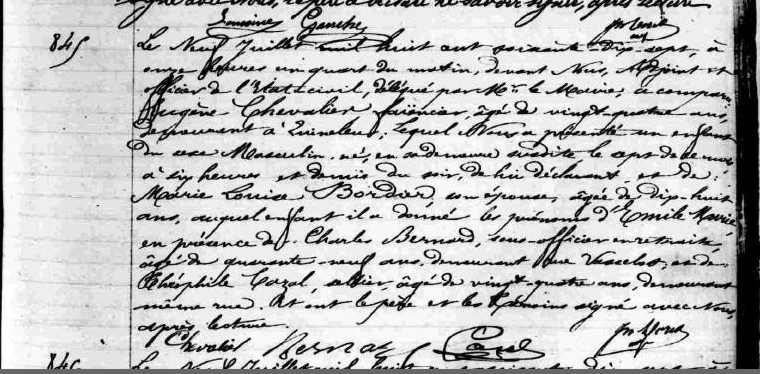 signé avec Nous, après lecture
845
Le Neuf Juillet mil huit cent soixante dix sept, à
onze heures un quart du matin, devant Nous, Adjoint et
officier de l'Etat civil, délégué par Mr. le Maire, a comparu
Eugène Chevalier âgé de vingt-quatre ans,
demeurant à lequel Nous a présenté un enfant
du sexe Masculin, né, en sa demeure susdite, le sept de ce mois
à six heures et demie du soir, de lui déclarant et de
Marie Louise Bordier, son épouse, âgée de dix huit
ans, auquel enfant il a donné les prénoms d'Emile Marie,
en présence de Charles Bernard, sous-officier en retraite,
âgé de quarante neuf ans, demeurant rue et de
Théophile Cazal, sellier, âgé de vingt-quatre ans, demeurant
même rue. Et ont le père et les témoins signé avec Nous,
après lecture.
Chevalier Bernard Cazal
846
Le Neuf Juillet mil huit cent soixante dix sept